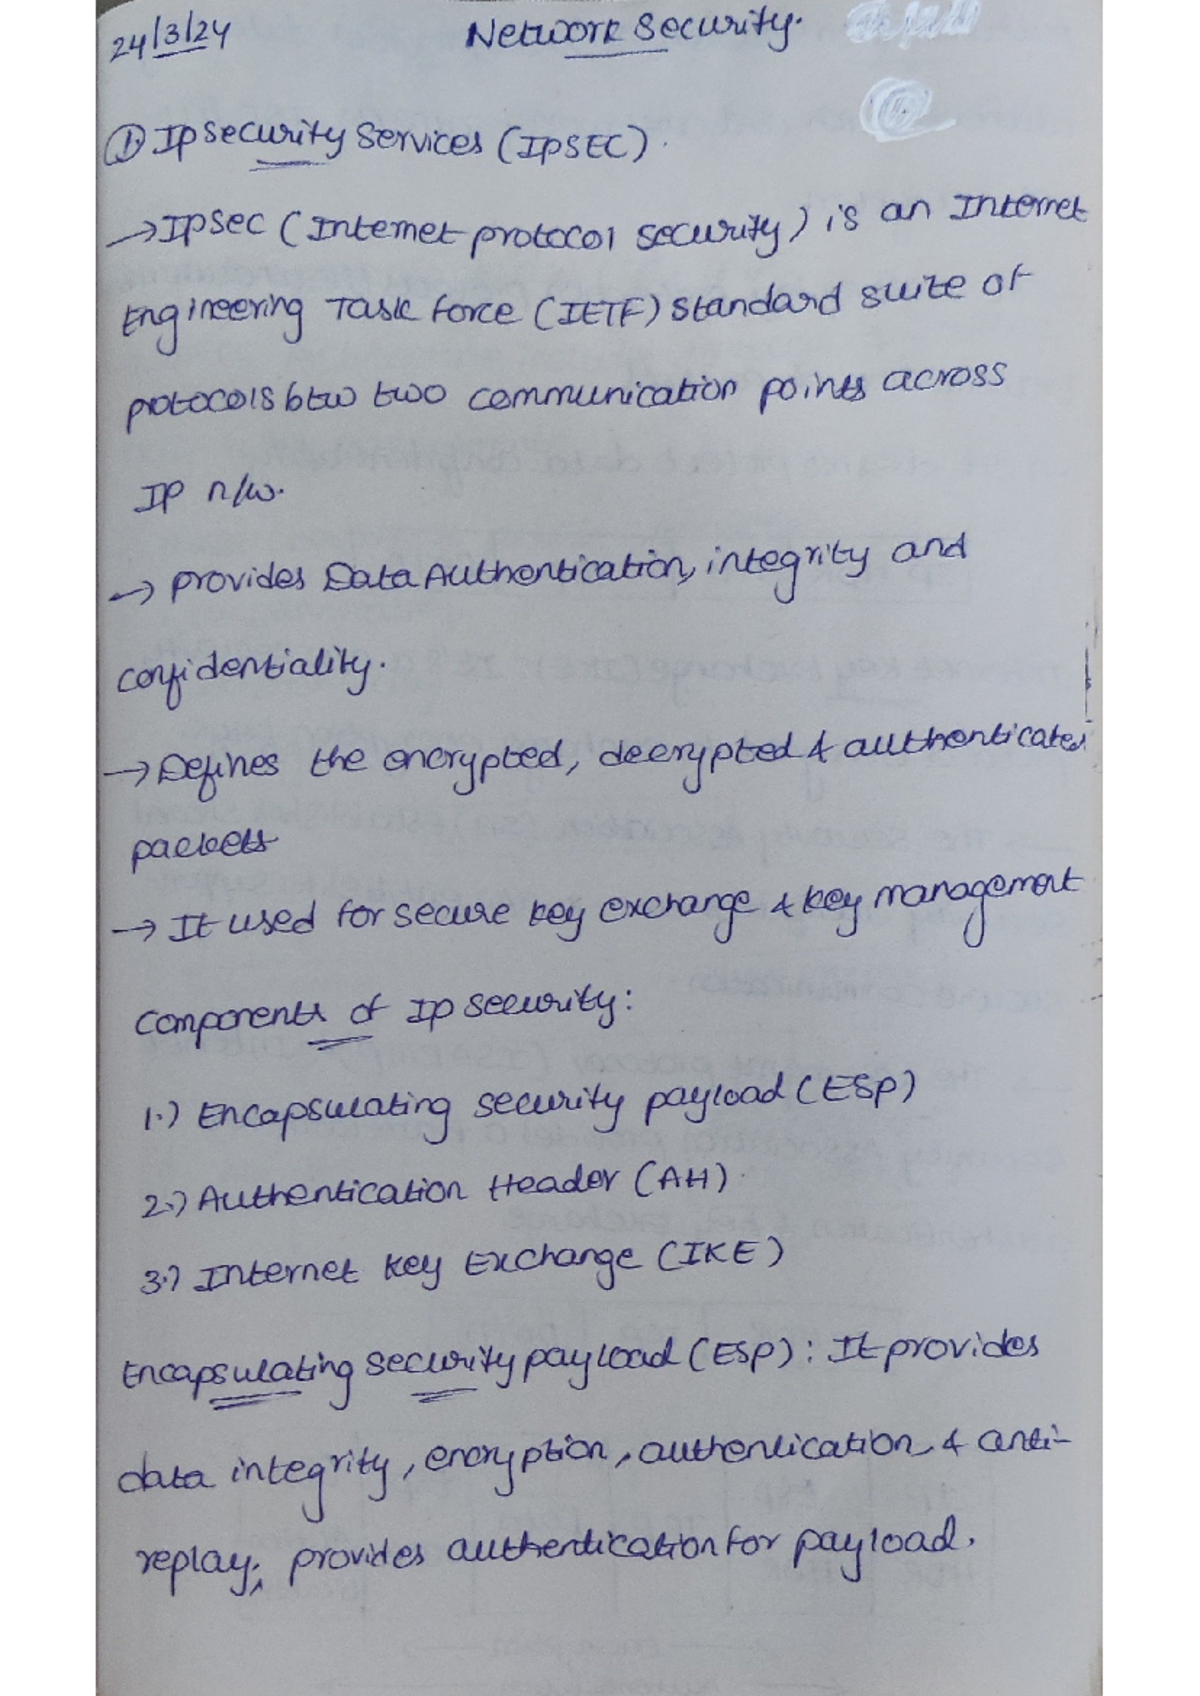 24/3/24 Network Security.
① Ip security Services (IPSEC).
→ Ipsec (Internet protocol security) is an Internet
Engineering Task force (IETF) standard suite of
protocols btw two communication points across
IP n/w.
→ provides Data Authentication, integrity and
confidentiality.
→ Defines the encrypted, decrypted & authenticated
packets
→ It used for secure key exchange & key management
components of Ip security:
1.) Encapsulating security payload (ESP)
2.) Authentication Header (AH).
3.) Internet key Exchange (IKE)
Encapsulating security payload (ESP): It provides
data integrity, encryption, authentication, & anti-
replay, provides authentication for payload.